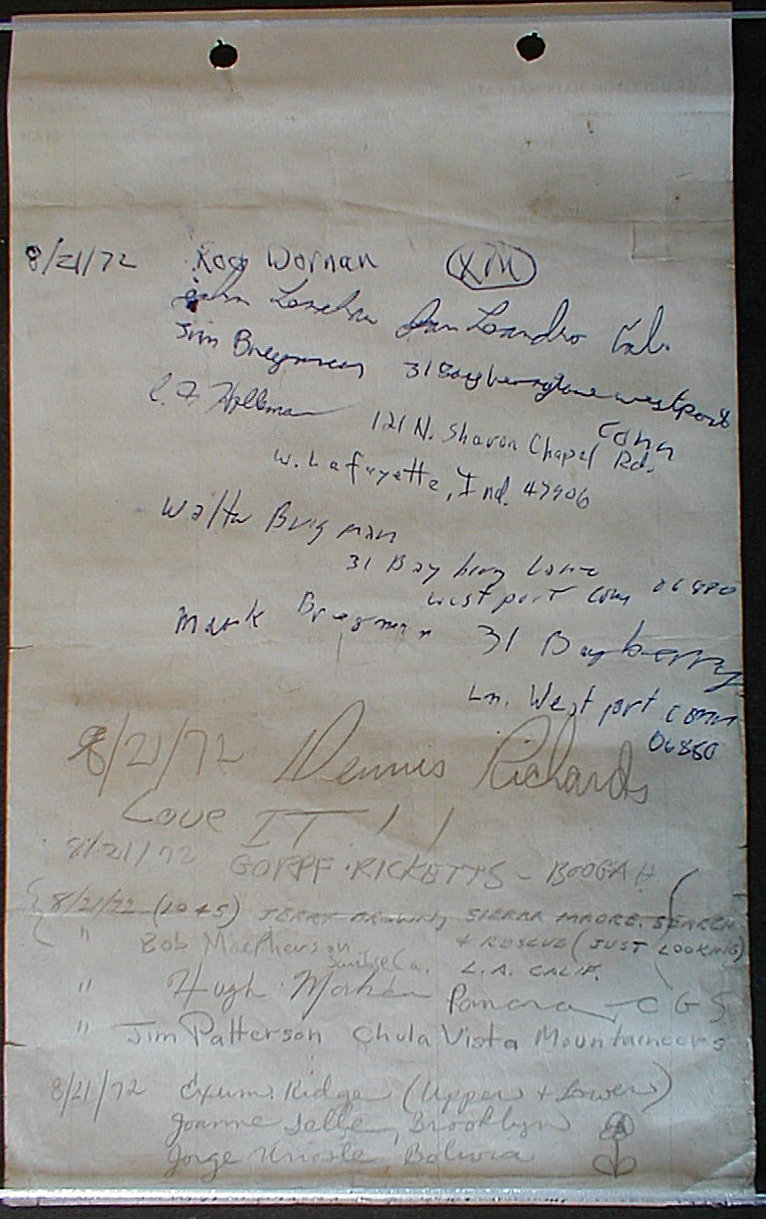 8/21/72 Ross Wornan XM
John San Leandro Cal.
Jim Bregman 31 Bayberry Lane Westport
Conn
C. F. Hollman 121 N. Sharon Chapel Rd.
W. Lafayette, Ind. 47906
Walter Bregman
31 Bayberry Lane
Westport Conn 06880
Mark Bregman 31 Bayberry
Ln. Westport Conn
06880
8/21/72 Dennis Richards
Love IT!!
8/21/72 GORPF RICKETTS - BOOGAH
8/21/72 (1045) JERRY BROWN, SIERRA MADRE SEARCH
& RESCUE (JUST LOOKING)
" Bob MacPherson L.A. CALIF.
" Hugh Pomona, CGS
" Jim Patterson Chula Vista Mountaineers
8/21/72 Exum Ridge (Upper + Lower)
Joanne Brooklyn
Jorge Urioste, Bolivia